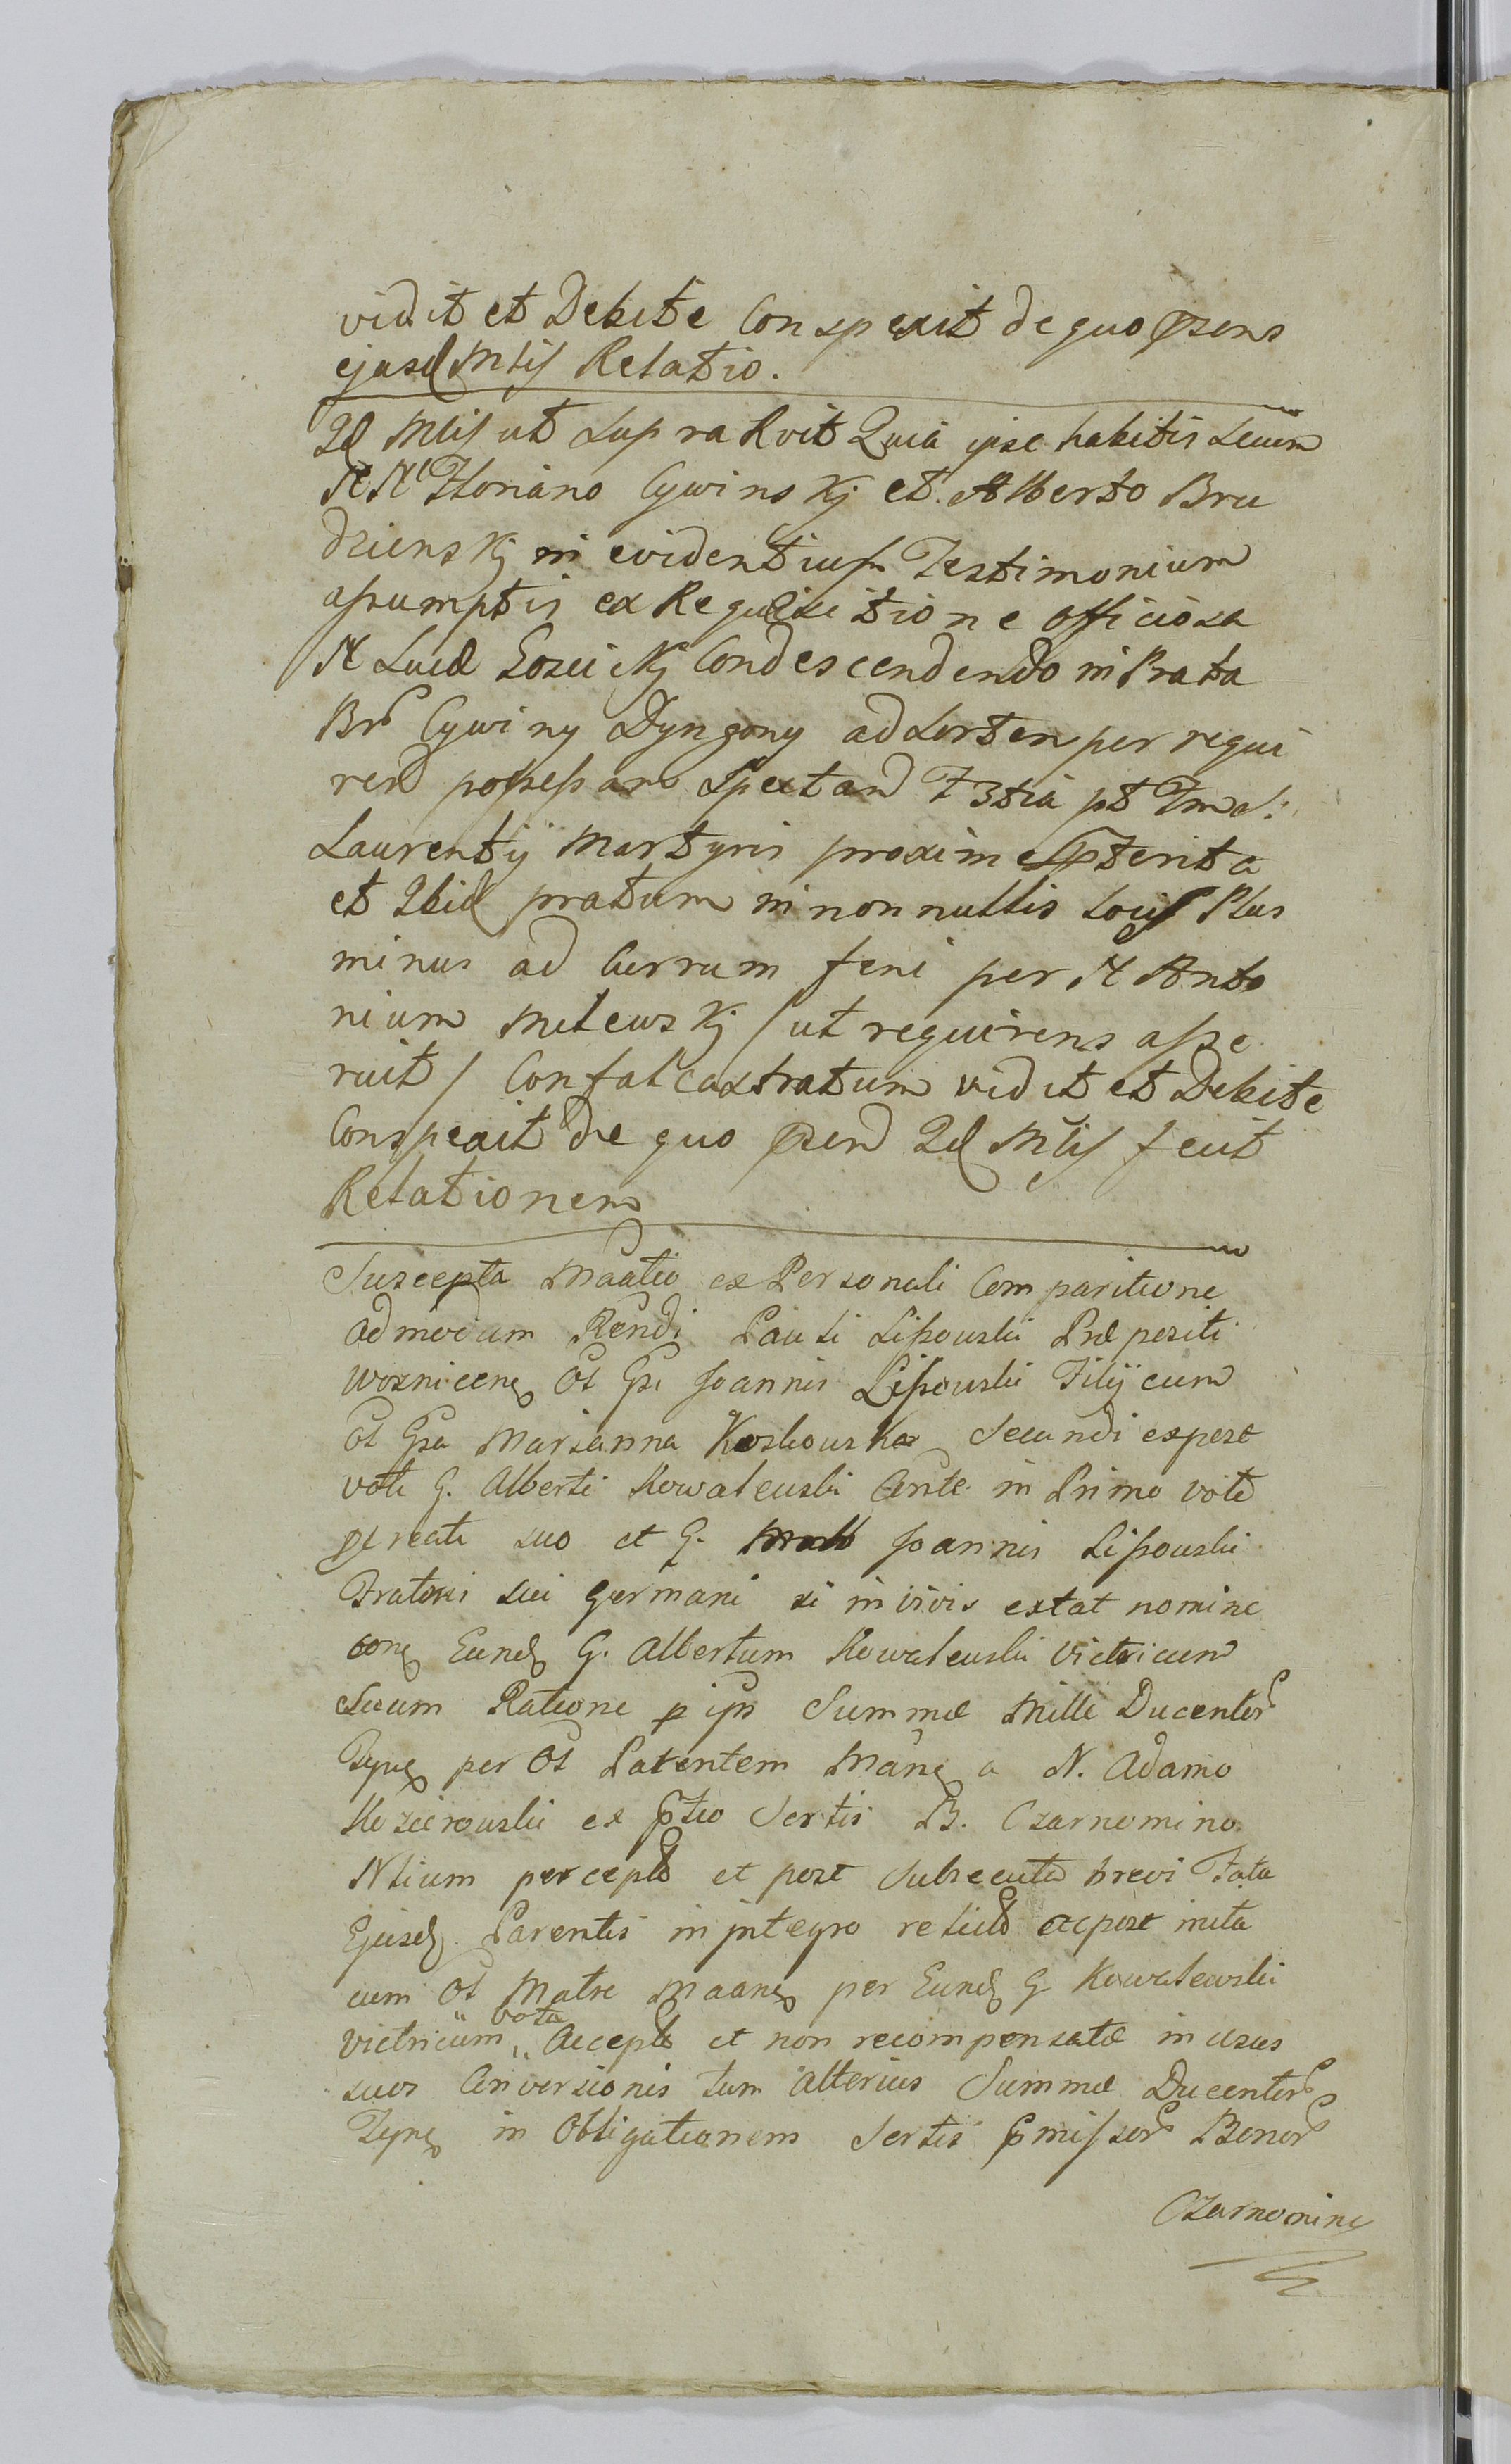 vidit et Debite Conspexit de quo prsens
ejusd Mlis Relatio.
Id Mlis ut Supra Rvit Quia ipse habitis Secum
N N Floriano Cywinskj et Alberto Bru
dzienskj in evidentius Testimonium
assumptis ex Requisitione officiosa
N Lud Condescendendo in Prata
Br Cywiny Dyngony ad Sortem per requi
ren possessam Spectand F 3tia pt Fm S.
Laurentij Martyris proxime pterita
et Ibid pratum in nonnullis Locis Plus
minus ad Currum feni per N Anto
nium Milewskj / ut requirens asse
ruit / Confalcastratum vidit et Debite
Conspexit de quo prsen Id Mlis fecit
Relationem
Suscepta Maatio ex Personali Comparitione
admodum Rendi Pauli Lissowski Præpositi
Woznicen Ol Gsi Joannis Lissowski Filij cum
Ol Gsa Marianna Koskowska Secundi expost
voti G. Alberti Kowalewski Conte in Primo voto
pcreati suo et G. Joannis Lissowski
Fratris sui germani si in vivis extat nomine
con Eund G. Albertum Kowalewski Victricum
Suum Ratione p ips Summæ Mille Ducentor
Tyn per Ol Parentem Man a N. Adamo
Kozierowski ex ptio Sortis B. Czarnomino
Ntium percept et post Subsecuta brevi Fata
Ejusd Parentis in integro relict expost inita
cum Ol Matre Maane per Eund G Kowalewski
Victricum vota Accept et non recompensatæ in usus
suos Conversionis tum alterius Summæ Ducentor
Tyn in Obligationem Sortis pmissor Bonor
Czarnomin